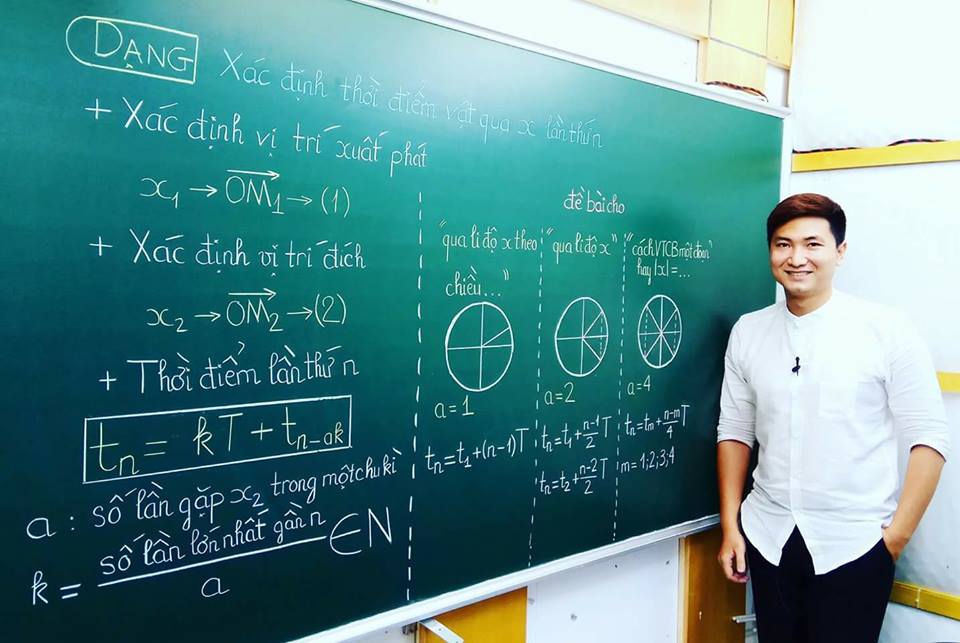 DẠNG Xác định thời điểm vật qua x lần thứ n
+ Xác định vị trí xuất phát
x₁ → \overrightarrow{OM₁} → (1)
+ Xác định vị trí đích
x₂ → \overrightarrow{OM₂} → (2)
+ Thời điểm lần thứ n
tₙ = kT + tₙ₋ₐₖ
a : số lần gặp x₂ trong một chu kì
k = \frac{số lần lớn nhất gần n}{a} ∈ N
đề bài cho
"qua li độ x theo
chiều..."
a = 1
tₙ = t₁ + (n-1)T
"qua li độ x"
a = 2
tₙ = t₁ + \frac{n-1}{2}T
tₙ = t₂ + \frac{n-2}{2}T
"cách VTCB một đoạn"
hay |x| = ...
a = 4
tₙ = tₘ + \frac{n-m}{4}T
m = 1; 2; 3; 4